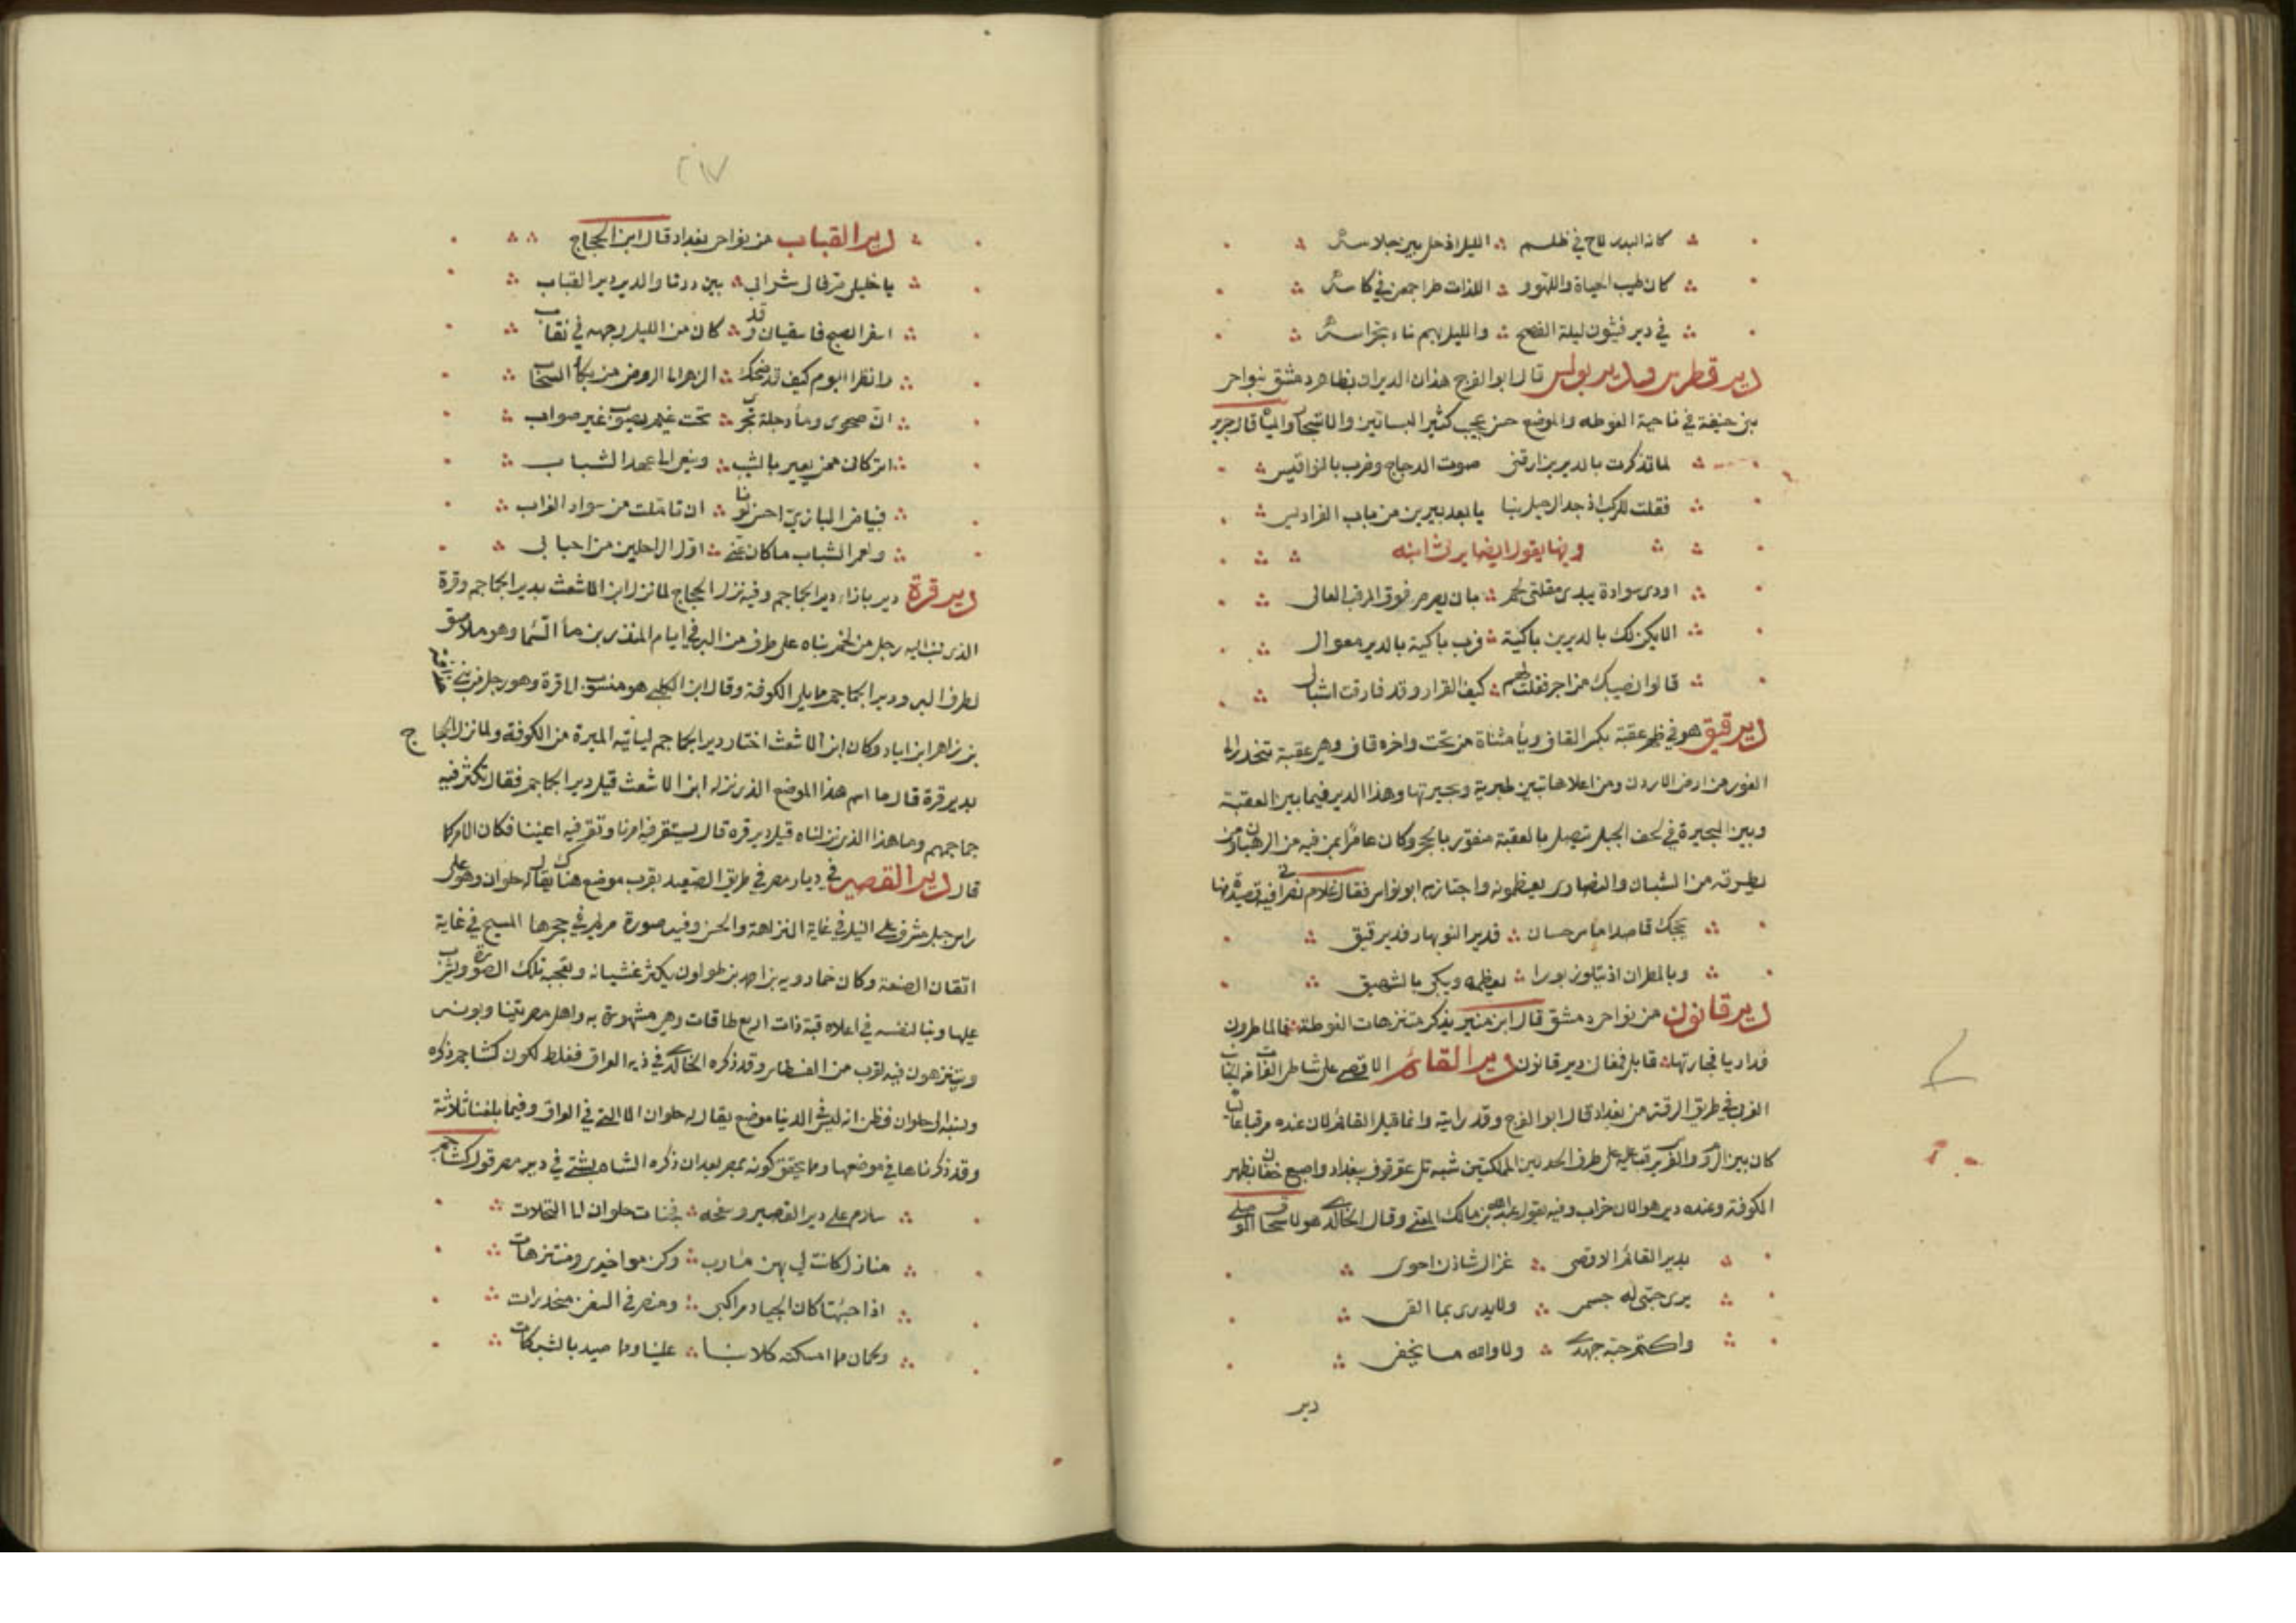 كان البدر لاح في ظلم الليل اذ حل بين جلاسه
كان طيب الحياة واللهو و اللذات طرا جمعن في كاسه
في دير فيثون ليلة الفصح والليل بهيم ناء بحراسه
دير قطرس ودير بولس قال ابو الفرج هذان الديران بظاهر دمشق بنواحي
بني حنيفة في ناحية الغوطه والموضع حسن عجيب كثير البساتين والاشجار والمياه قال جرير
لما تذكرت بالديرين ارقني صوت الدجاج وضرب بالنواقيس
فقلت للركب اذ جد الرحيل بنا يا بعد يبرين من باب الفراديس
وفيها يقول ايضا يرثى ابنه
اودى سوادة يبدى مقلتي لحم بان يصرصر فوق المرقب العالي
الا يكن لك بالديرين باكية فرب باكية بالدير معوال
قالوا نصيبك من اجر فقلت لهم كيف القرار وقد فارقت اشبالي
دير فيق هو في ظهر عقبة بكسر القاف ويا مثناة من تحت واخره قاف وهي عقبة تنحدر الى
الغور من ارض الاردن ومن اعلاها تبين طبرية وبحيرتها وهذا الدير فيما بين العقبة
وبين البحيرة في لحف الجبل يتصل بالعقبة منقور بالحجر وكان عامرا بمن فيه من الرهبان ومن
يطرقه من الشبان والنصارى يعظمونه واجتاز به ابو نواس فقال في غلام نصراني قصيدة منها
بحجك قاصدا ماسرحسان فدير النوبهار فدير فيق
وبالمطران اذ يتلو زبورا يعظمه ويبكي بالشهيق
دير قانون من نواحي دمشق قال ابن منير يذكر متنزهات الغوطة فالماطرون
فداريا فجارتها فابل فمغان دير قانون دير القائم الاقصى على شاطئ الفرات من الجانب
الغربي في طريق الرقة من بغداد قال ابو الفرج وقد رايته وانما قيل القائم لان عنده مرقبا عاليا
كان بين الروم والفرس يرقب عليه على طرف الحد بين المملكتين شبه تل عقرقوف ببغداد واصبع خفان بظهر
الكوفة وعنده دير هو الان خراب وفيه يقول عبد الله بن مالك المغني وقال الخالدي هو لاسحاق الموصلي
بدير القائم الاقصى غزال شادن احوى
برى حبي له جسمي ولا يدرى بما القى
واكتم حبه جهدي ولا والله ما يخفى
دير
٢١٧
دير القباب من نواحي بغداد قال ابن الحجاج
يا خليلي صرفا لي شرابي بين درتا والدير دير القباب
اسفر الصبح فاسقياني وقد كان من الليل وجهه في نقاب
وانظرا اليوم كيف قد ضحك الزهر الى الروض من بكا السحاب
ان صحوى وما دجلة يجرى تحت غيم يصوب غير صواب
اتركاني ممن يعير بالشيب وينعى الي عهد الشباب
فبياض البازي احسن لونا ان تاملت من سواد الغراب
ولعمر الشباب ما كان عني اول الراحلين من احبابي
دير قرة دير بازاء دير الجماجم وفيه نزل الحجاج لما نزل ابن الاشعث بدير الجماجم وقرة
الذى نسب اليه رجل من لخم بناه على طرف من البر في ايام المنذر بن ماء السما وهو ملاصق
لطرف البر ودير الجماجم مما يلي الكوفة وقال ابن الكلبي هو منسوب الى قرة وهو رجل من بني
بن زاهر ابن اياد وكان ابن الاشعث اختار دير الجماجم لياتيه الميرة من الكوفة ولما نزل الحجاج
بدير قرة قال ما اسم هذا الموضع الذى نزله ابن الاشعث قيل دير الجماجم فقال تكثر فيه
جماجمهم وما هذا الذى نزلناه قيل دير قره قال يستقر فيه امرنا وتقر فيه اعيننا فكان الامر كما
قال دير القصير في ديار مصر في طريق الصعيد بقرب موضع هناك يقال له حلوان وهو على
راس جبل مشرف على النيل في غاية النزاهة والحسن وفيه صورة مريم في حجرها المسيح في غاية
اتقان الصنعة وكان خمارويه بن احمد بن طولون يكثر غشيانه وتعجبه تلك الصورة ويشرب
عليها وبنا لنفسه في اعلاه قبة ذات اربع طاقات وهي مشهورة به واهل مصر يتينابونه
ويتنزهون فيه لقربه من الفسطاط وقد ذكره الخالدي في ديرة العراق فغلط لكون كشاجم ذكره
ونسبه الى حلوان فظن انه ليس في الدنيا موضع يقال له حلوان الا التي في العراق وفيما بلغنا ثلاثة
وقد ذكرناها في موضعها ومما يحقق كونه بمصر بعد ان ذكره الشابشتي في ديرة مصر قول كشاجم
سلام على دير القصير وسفحه بجنات حلوان الى النخلات
منازل كانت لي بهن مارب وكن مواخيرى ومنتزهاتي
اذا جئتها كان الجياد مراكبي ومنصرفي في السفن منحدرات
ولحمان مما امسكته كلابنا علينا ومما صيد بالشبكات